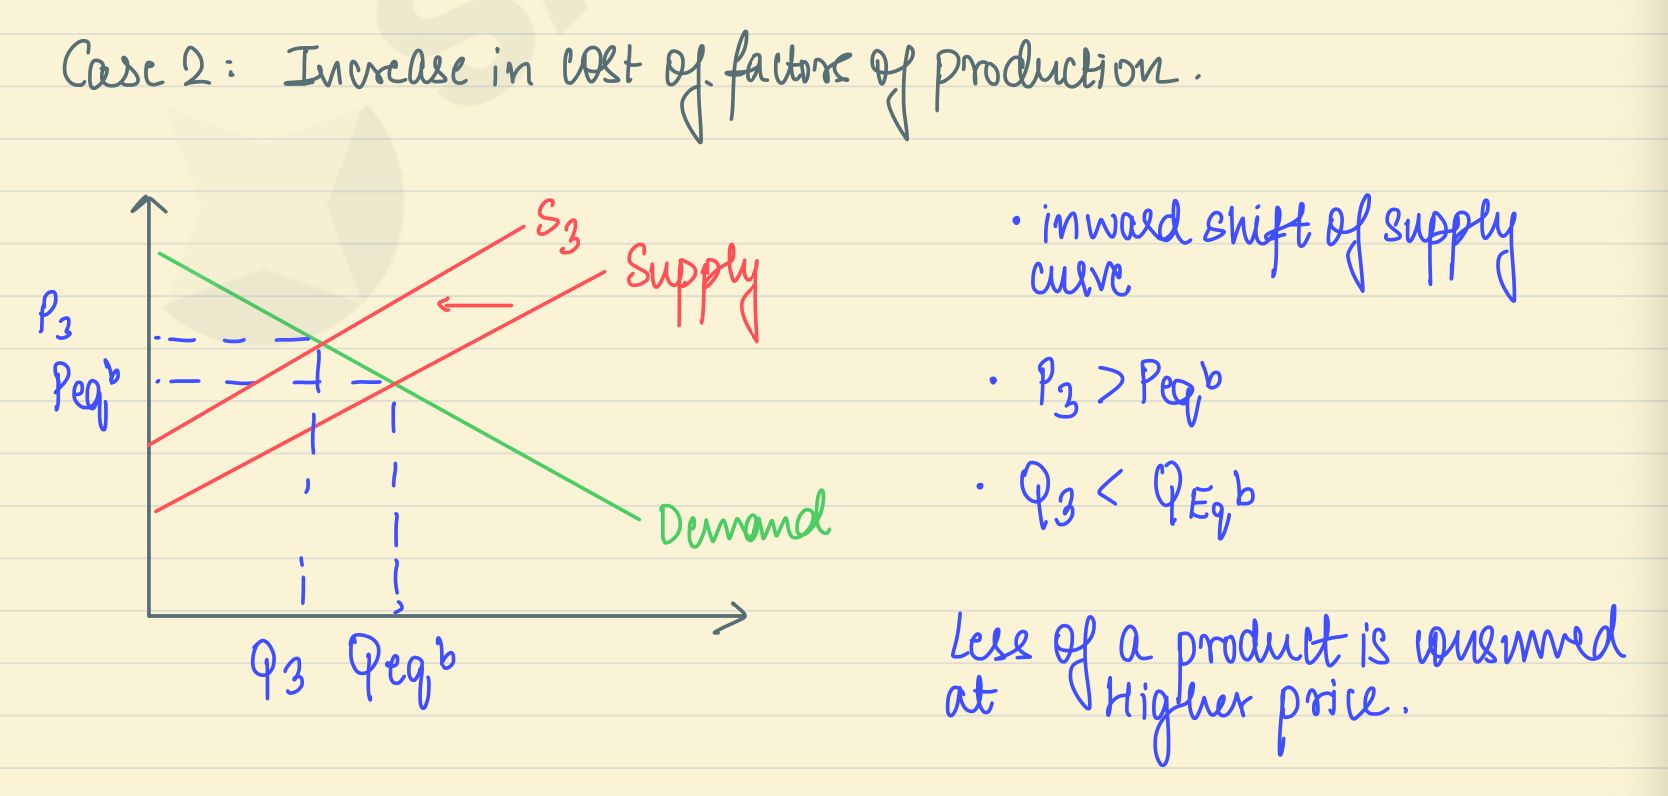 Case 2: Increase in cost of factors of production.
S3
Supply
P3
Peqb
Demand
Q3 Qeqb
• inward shift of supply
curve
• P3 > Peqb
• Q3 < QEqb
Less of a product is consumed
at Higher price.